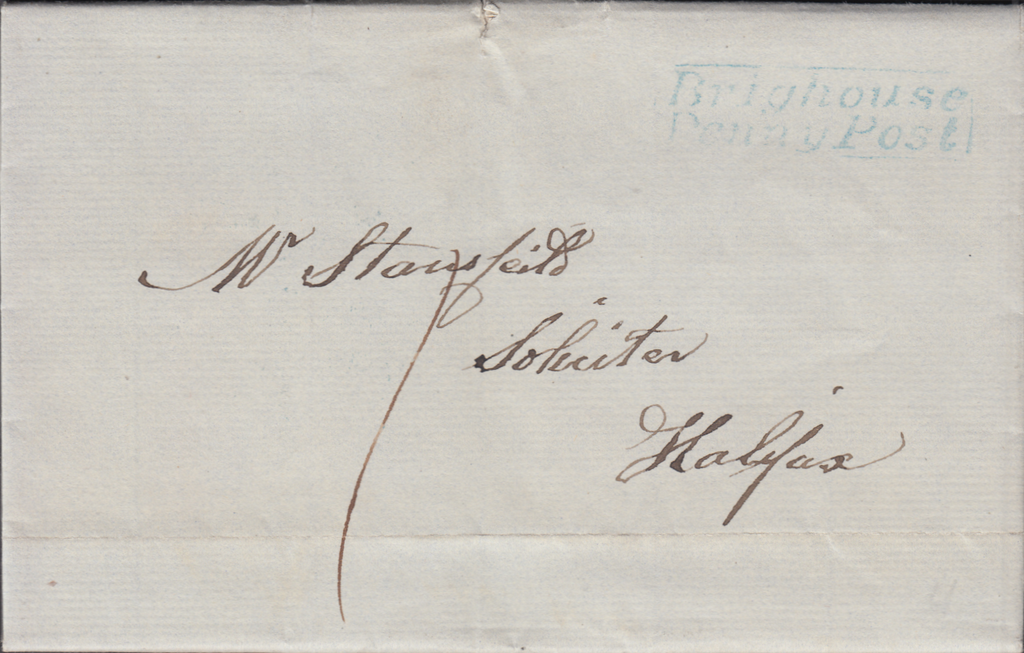 Brighouse
Penny Post
Mr Stansfeild
Soliciter
Halifax
1